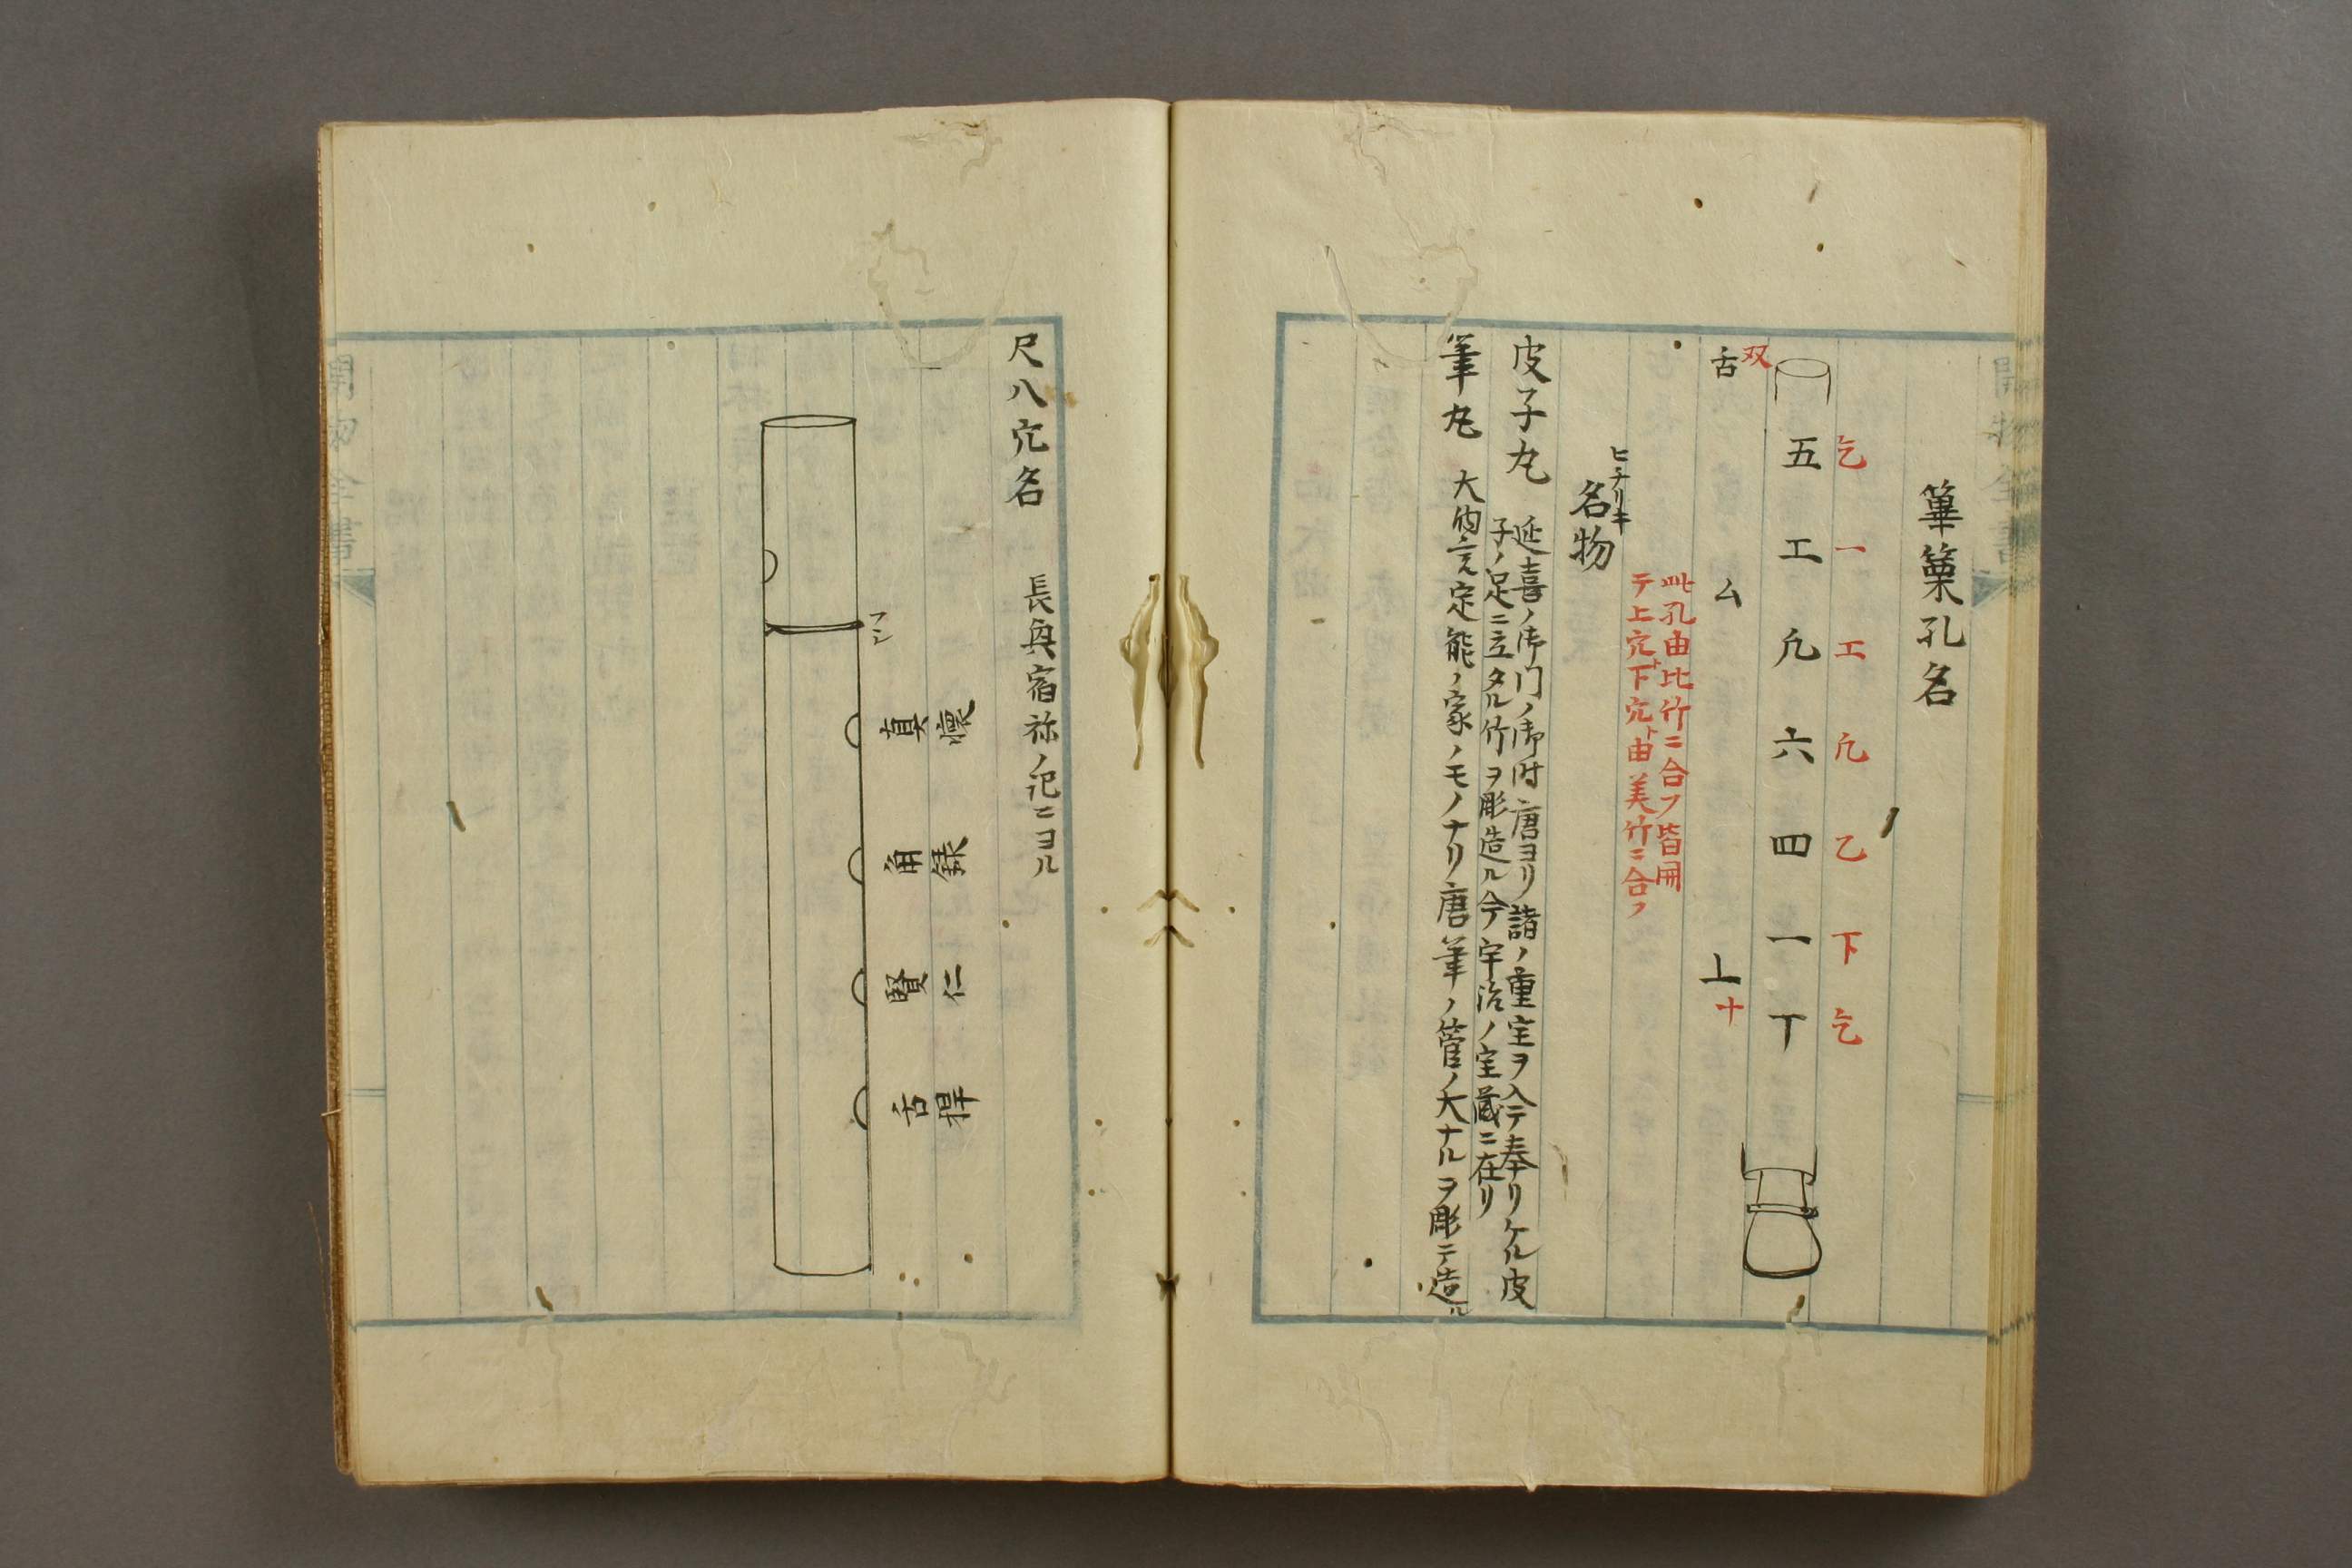 篳篥孔名
乞 一 工 凢 乙 下 乞
五 工 凢 六 四 一 丅
双
舌 ム 丄
十
此孔由比竹ニ合フ皆開
テ上穴ト下穴ト由美竹ニ合フ
ヒチリキ
名物
皮子丸 延喜ノ御门ノ御時唐ヨリ諸ノ重宝ヲ入テ奉リケル皮
子ノ足ニ立タル竹ヲ彫造ル今宇治ノ宝蔵ニ在リ
筆丸 大納言定能ノ家ノモノナリ唐筆ノ管ノ大ナルヲ彫テ造ル
尺八穴名 長奥宿祢ノ記ニヨル
フシ
懐 録 仁 捍
真 角 賢 舌
開物全書